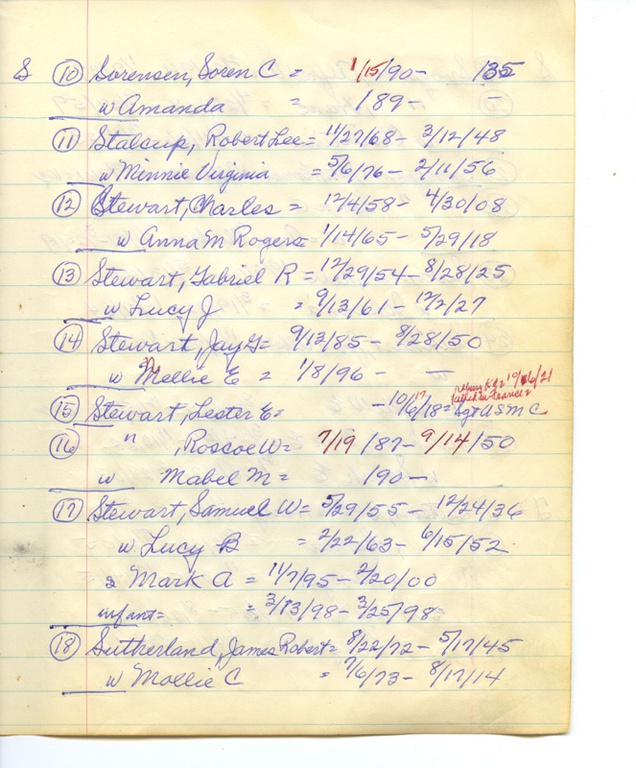 S (10) Sorensen, Soren C = 1/15/90 - 135
w Amanda = 189 - -
(11) Stalcup, Robert Lee = 11/27/68 - 3/12/48
w Minnie Virginia = 5/6/76 - 2/11/56
(12) Stewart, Charles = 12/4/58 - 4/30/08
w Anna M Rogers = 1/14/65 - 5/29/18
(13) Stewart, Gabriel R = 12/29/54 - 8/28/25
w Lucy J = 9/13/61 - 12/2/27
(14) Stewart, Jay G = 9/12/85 - 8/28/50
w Mellie E = 1/8/96 - -
10/16/21
killed in France
(15) Stewart, Lester E = - 10/6/18 = Sgt USMC
(16) " , Roscoe W = 7/19/87 - 9/14/50
w Mabel M = 190 -
(17) Stewart, Samuel W = 5/29/55 - 12/24/36
w Lucy B = 2/22/63 - 6/15/52
s Mark A = 11/7/95 - 2/20/00
infant = = 3/13/98 - 3/25/98
(18) Sutherland, James Robert = 8/22/72 - 5/17/45
w Mollie C = 7/6/73 - 8/17/14